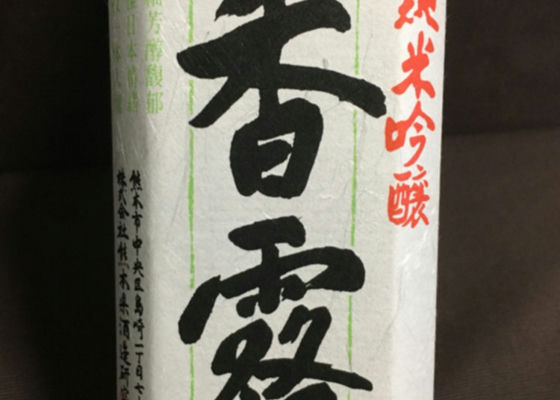 純米吟醸
香露
芳醇馥郁
日本
熊本市中央区島崎一丁目七
株式会社熊本県酒造研